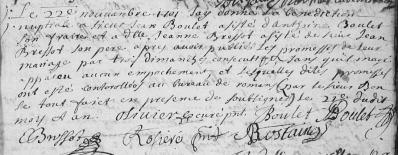 Le 22e nouvembre 1703 jay donné la benediction
nuptialle a sieur Jean Boulet assisté d'antoine Boulet
son fraire et a dlle Jeanne Bressot assisté de sieur Jean
Bressot son pere apres avoir publiés les promesses de leur
mariage par trois dimanches consecutifs sans quil m'aye
apparu aucun empechement et lesquelles dites promesses
ont esté controllées au bureau de romans par le sieur
le tout faict en presence des soubsignés le 22e dudit
mois et an. Olivier curé pnt Boulet Boulet
Bressot Rosiere pnt Rostaing